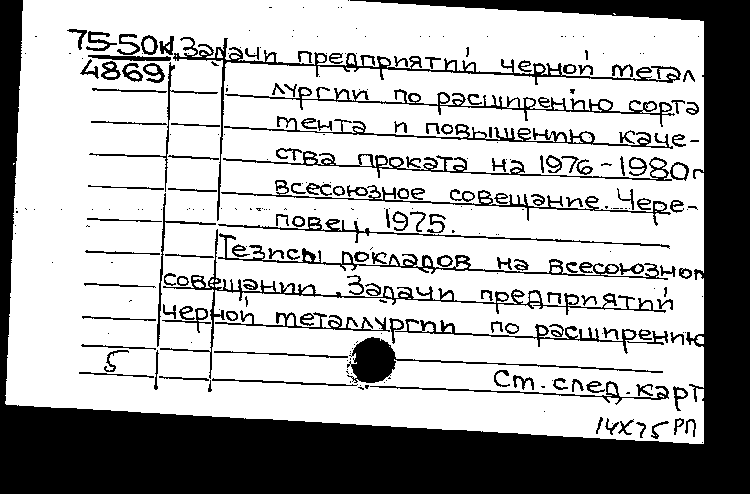 75-50к Задачи предприятий черной метал-
4869
лургии по расширению сорта
мента и повышению каче-
ства проката на 1976-1980г
всесоюзное совещание. Чере-
повец, 1975.
Тезисы докладов на всесоюзном
совещании. Задачи предприятий
черной металлургии по расширению
5
Ст. след. карт.
14X75 РП